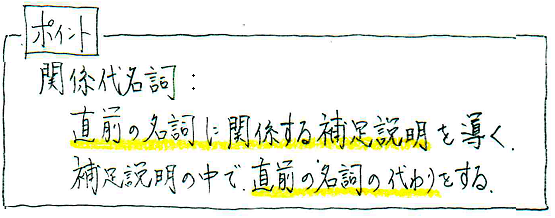 ポイント
関係代名詞：
直前の名詞に関係する補足説明を導く.
補足説明の中で.直前の名詞の代わりをする.